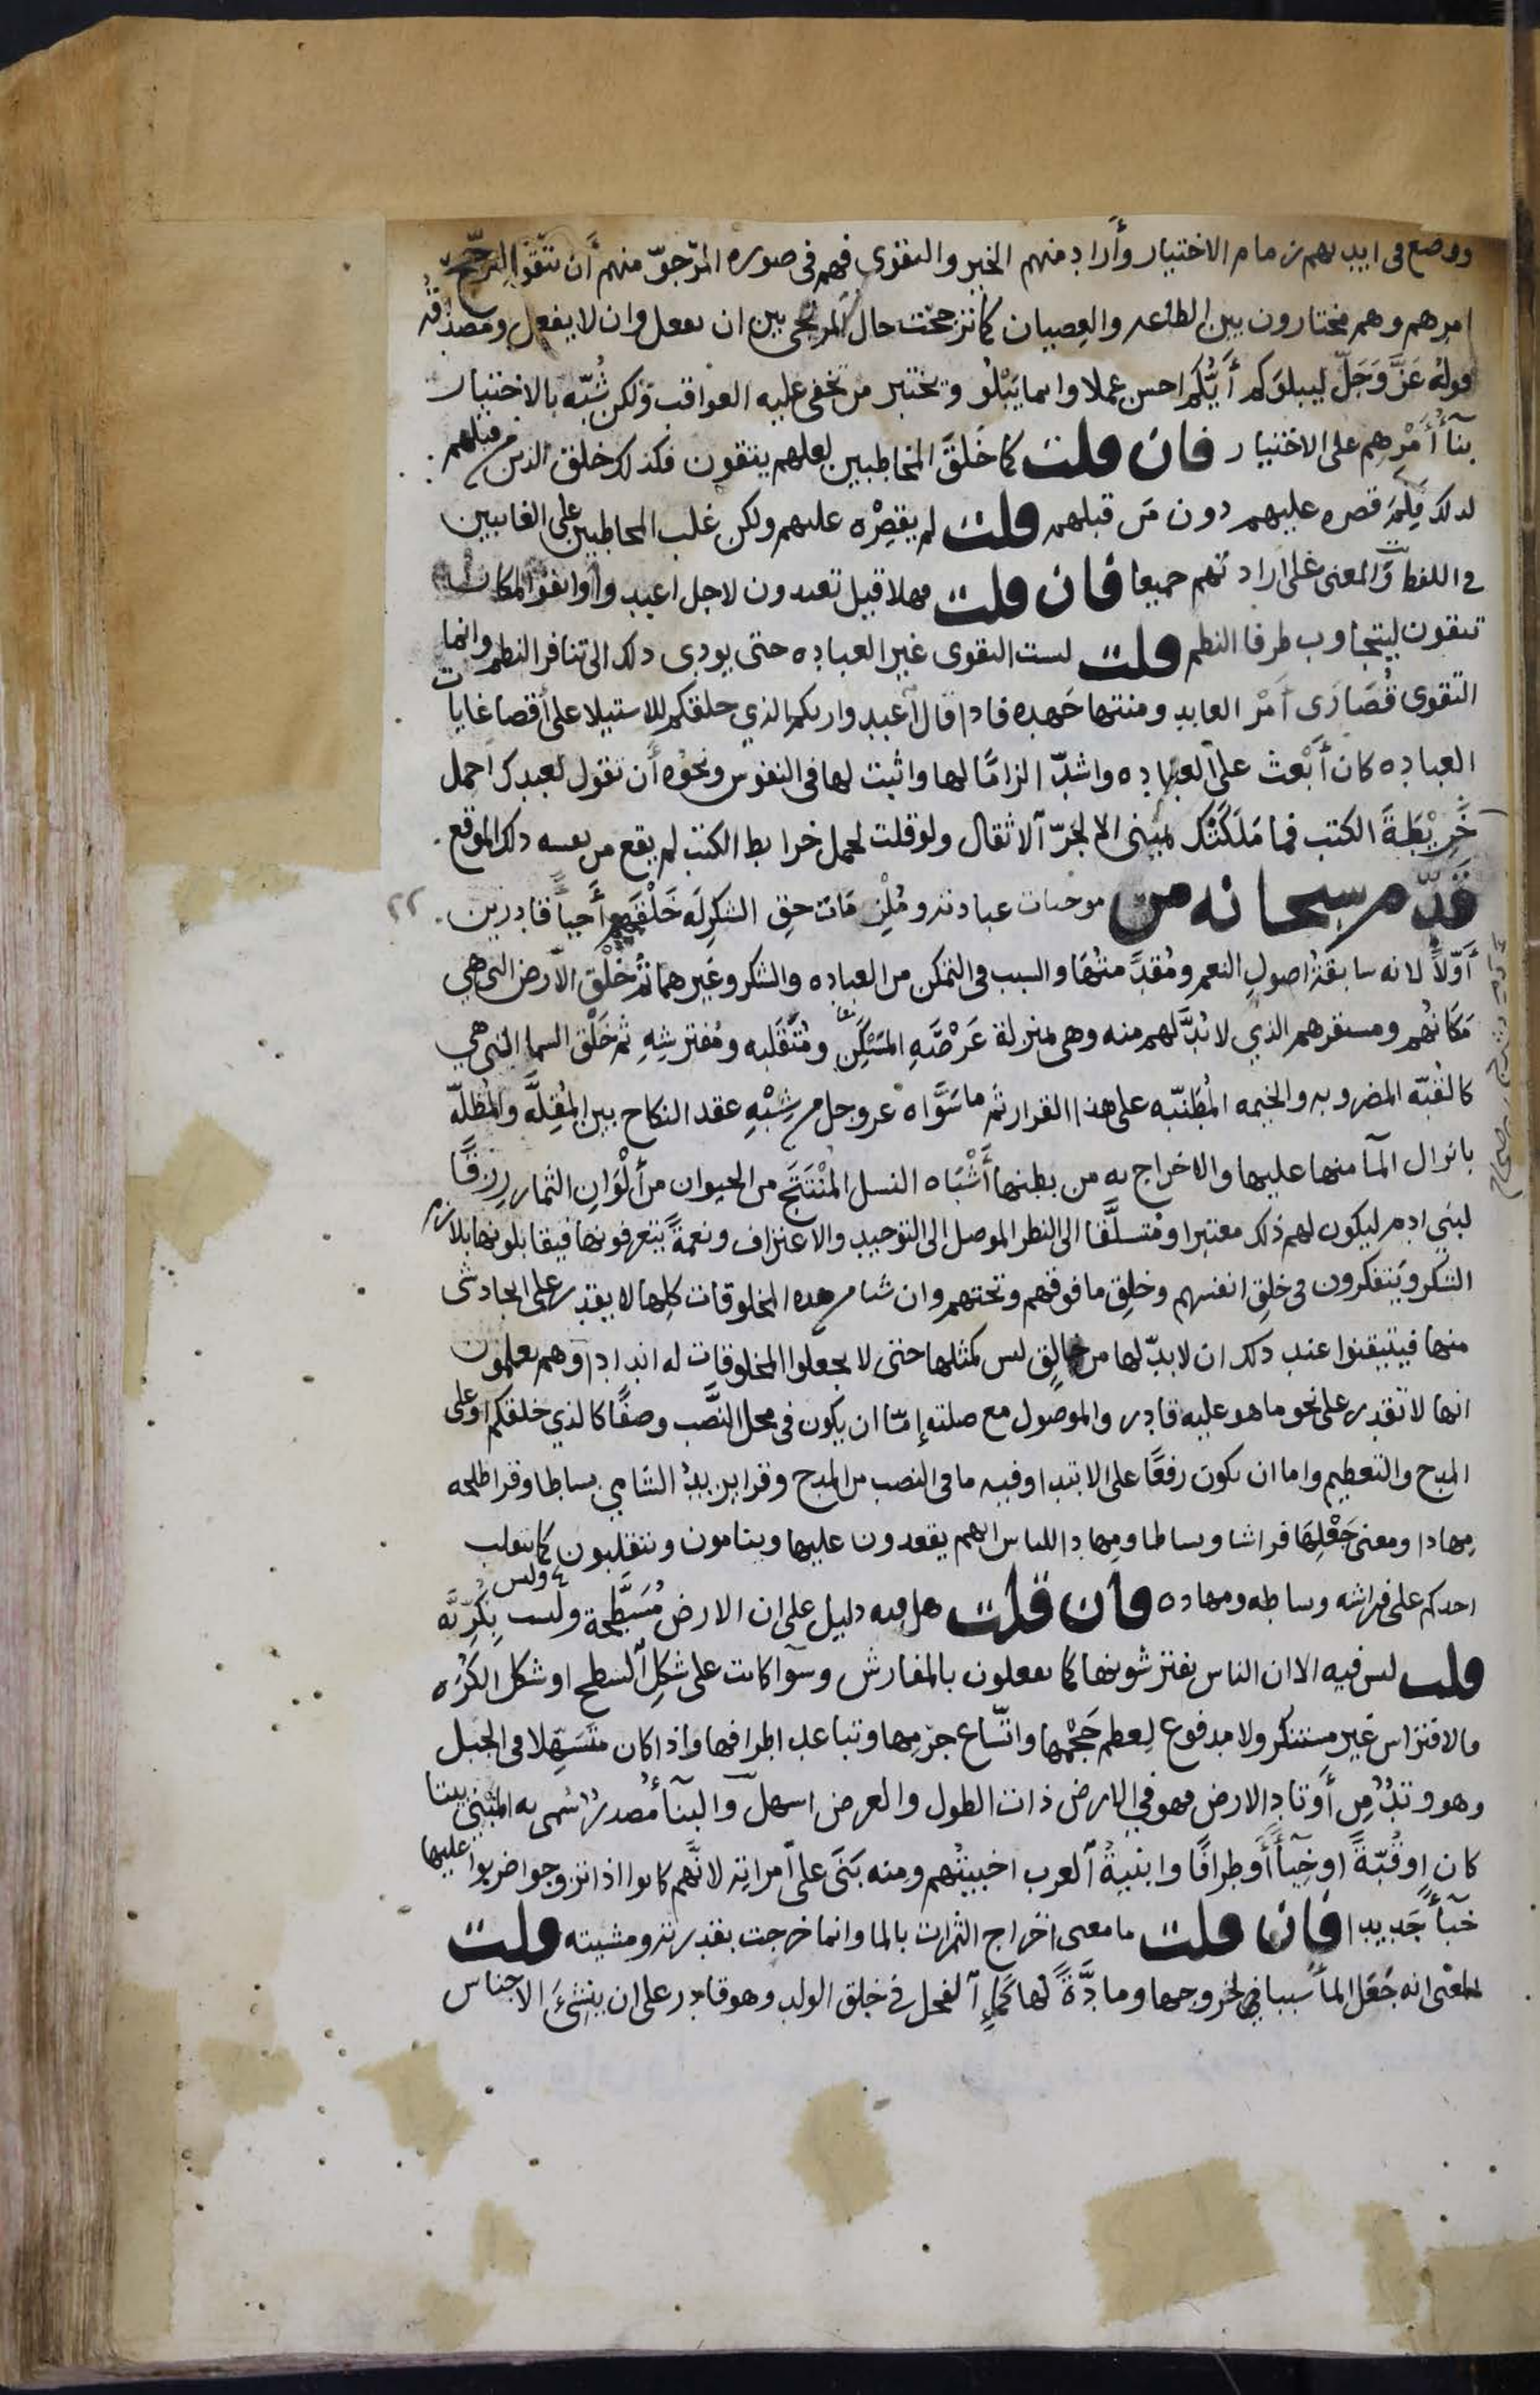 ووضع في ايديهم زمام الاختيار وأراد منهم الخير والتقوى فهم في صورة المرجوّ منهم أن يتّقوا ليترجّح
امرهم وهم مختارون بين الطاعه والعِصيان كما ترجحت حال المرتجى بين ان يفعل وان لا يفعل ومصداقه
قوله عَزَّ وَجَلّ ليبلوَكم أَيُّكم احسن عملا وانما يَبْلُو ويختبر من تخفى عليه العواقب ولكن شُبّه بالاختبار
بنآءُ أَمْرِهِم على الاختيار فان قلت كما خَلقَ المخاطبين لعلهم يتقون فكذلك خلق الذين من قبلهم
لذلك فلِمَ قصره عليهم دون مَن قبلهم قلت لم يقصِرْه عليهم ولكن غلب المخاطبين على الغايبين
في اللفظ والمعنى على ارادتهم جميعا فان قلت فهلا قيل تعبدون لاجل اعبدوا أو اتقوا لمكان
تتقون ليتجاوب طرفا النظم قلت ليست التقوى غير العباده حتى يودى ذلك الى تنافر النظم وانما
التقوى قُصَارَى أَمْر العابد ومنتها جَهده فاذا قال اعبدوا ربكم الذي خلقكم للاستيلا على أقصا غايات
العباده كان أَبْعث على العباده واشدّ الزامًا لها واثبت لها في النفوس ونحوه أن تقول لعبدك احمل
خَرِيْطَةَ الكتب فما مَلَكَتْك يميني الا لجَرّ الاثقال ولو قلت لحمل خرايط الكتب لم يقع من نفسه ذلك الموقع
قدّم سبحانه من موجبات عبادته ومُلْزِمَات حق الشكرِ لَه خَلْقَهم أَحياً قادرين
أَوّلاً لانه سابقةُ اصولِ النعم ومُقدَّمتُهَا والسبب في التمكن من العباده والشكر وغيرهما ثُم خَلْق الأرض التي هي
مَكَانُهُم ومستقرهم الذي لا بُدَّ لهم منه وهي بمنزلة عَرْصَةِ المَسْكَنِ ومُتَقلّبه ومُفترشِهِ ثم خَلْقَ السما التي هي
كالقُبّه المضروبه والخيمه المُطَنّبه على هذا القرار ثم ما سَوَّاه عز وجل من شِبْهِ عقد النكاح بين المُقِلّة والمُظلّة
بانزال المآ منها عليها والاخراج به من بطنها أَشْبَاه النسل المُنْتَج من الحيوان من أَلْوَانِ الثمار رِزقًا
لبني ادم ليكون لهم ذلك معتبرا ومُتسلَّقا الى النظر الموصل الى التوحيد والاعتراف ونعمةً يتعرفونها فيقابلونها بلازم
الشكر ويتفكرون في خلق انفسهم وخلق ما فوقهم وتحتهم وان شيا من هذه المخلوقات كلها لا يقدر على ايجاد شى
منها فيتيقنوا عند ذلك ان لا بدّ لها من خالق ليس كمثلها حتى لا يجعلوا المخلوقات له اندادا وهم يعلمون
انها لا تقدر على نحو ما هو عليه قادر والموصول مع صلته إمّا ان يكون في محل النَّصب وصفًا كالذي خلقكم او على
المدح والتعظيم واما ان يكون رفعًا على الابتدا وفيه ما في النصب من المدح وقرا يزيدُ الشامي بساطا وقرا طلحه
مِهادا ومعنى جَعْلِهَا فراشا وبساطا ومِهادا للناس انهم يقعدون عليها وينامون ويتقلّبون كما يتقلب
احدكم على فراشه وبساطه ومهاده فان قلت هل فيه دليل على ان الارض مُسَطّحة وليست بِكُرِيَّه
وليس
قلت ليس فيه الا ان الناس يفترشونها كما يفعلون بالمفارش وسوآ كانت على شكل السطح او شكل الكُره
فالافتراش غير مستنكر ولا مدفوع لعظم حَجْمها واتّساع جِرمها وتباعد اطرافها واذا كان مُتَسَهّلا في الجبل
وهو وتدٌ مِن أَوتاد الارض فهو في الارض ذات الطول والعرض اسهل والبنآءُ مُصدرٌ سُمى به المبْنى بيتا
كان او قُبّةً او خِبآءً أو طِرافًا وابنيةُ العرب اخبيتُهم ومنه بَنَى على امراته لانَّهم كانوا اذا تزوجوا ضربوا عليها
خبآءً جَديدا فان قلت ما معنى اخراج الثمرات بالما وانما خرجت بقدرته ومشيته قلت
المعنى انه جَعَل المآ سببا في خروجها ومادَّةً لها كمآءِ الفحل في خلق الولد وهو قادر على ان ينشئَ الاجناس